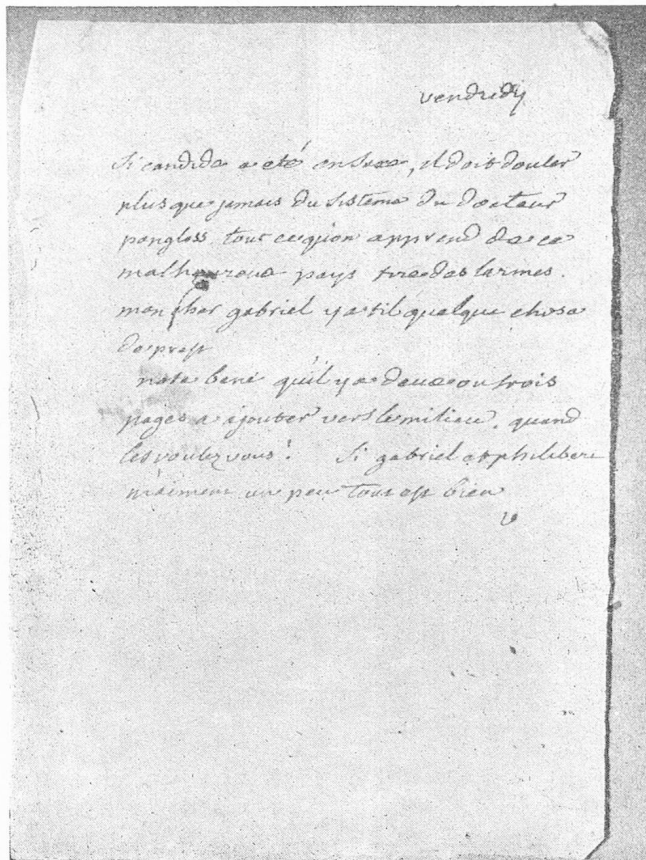 vendredy
Si candide a eté en saxe, il doit douter
plus que jamais du sisteme du docteur
pangloss. tout ce qu'on apprend de ce
malheureux pays tire des larmes.
mon cher gabriel y a til quelque chose
de prest
nota bene qu'il y a deux ou trois
pages a ajouter vers le milieu. quand
les voulez vous? Si gabriel et philibert
m'aiment un peu tout est bien
V